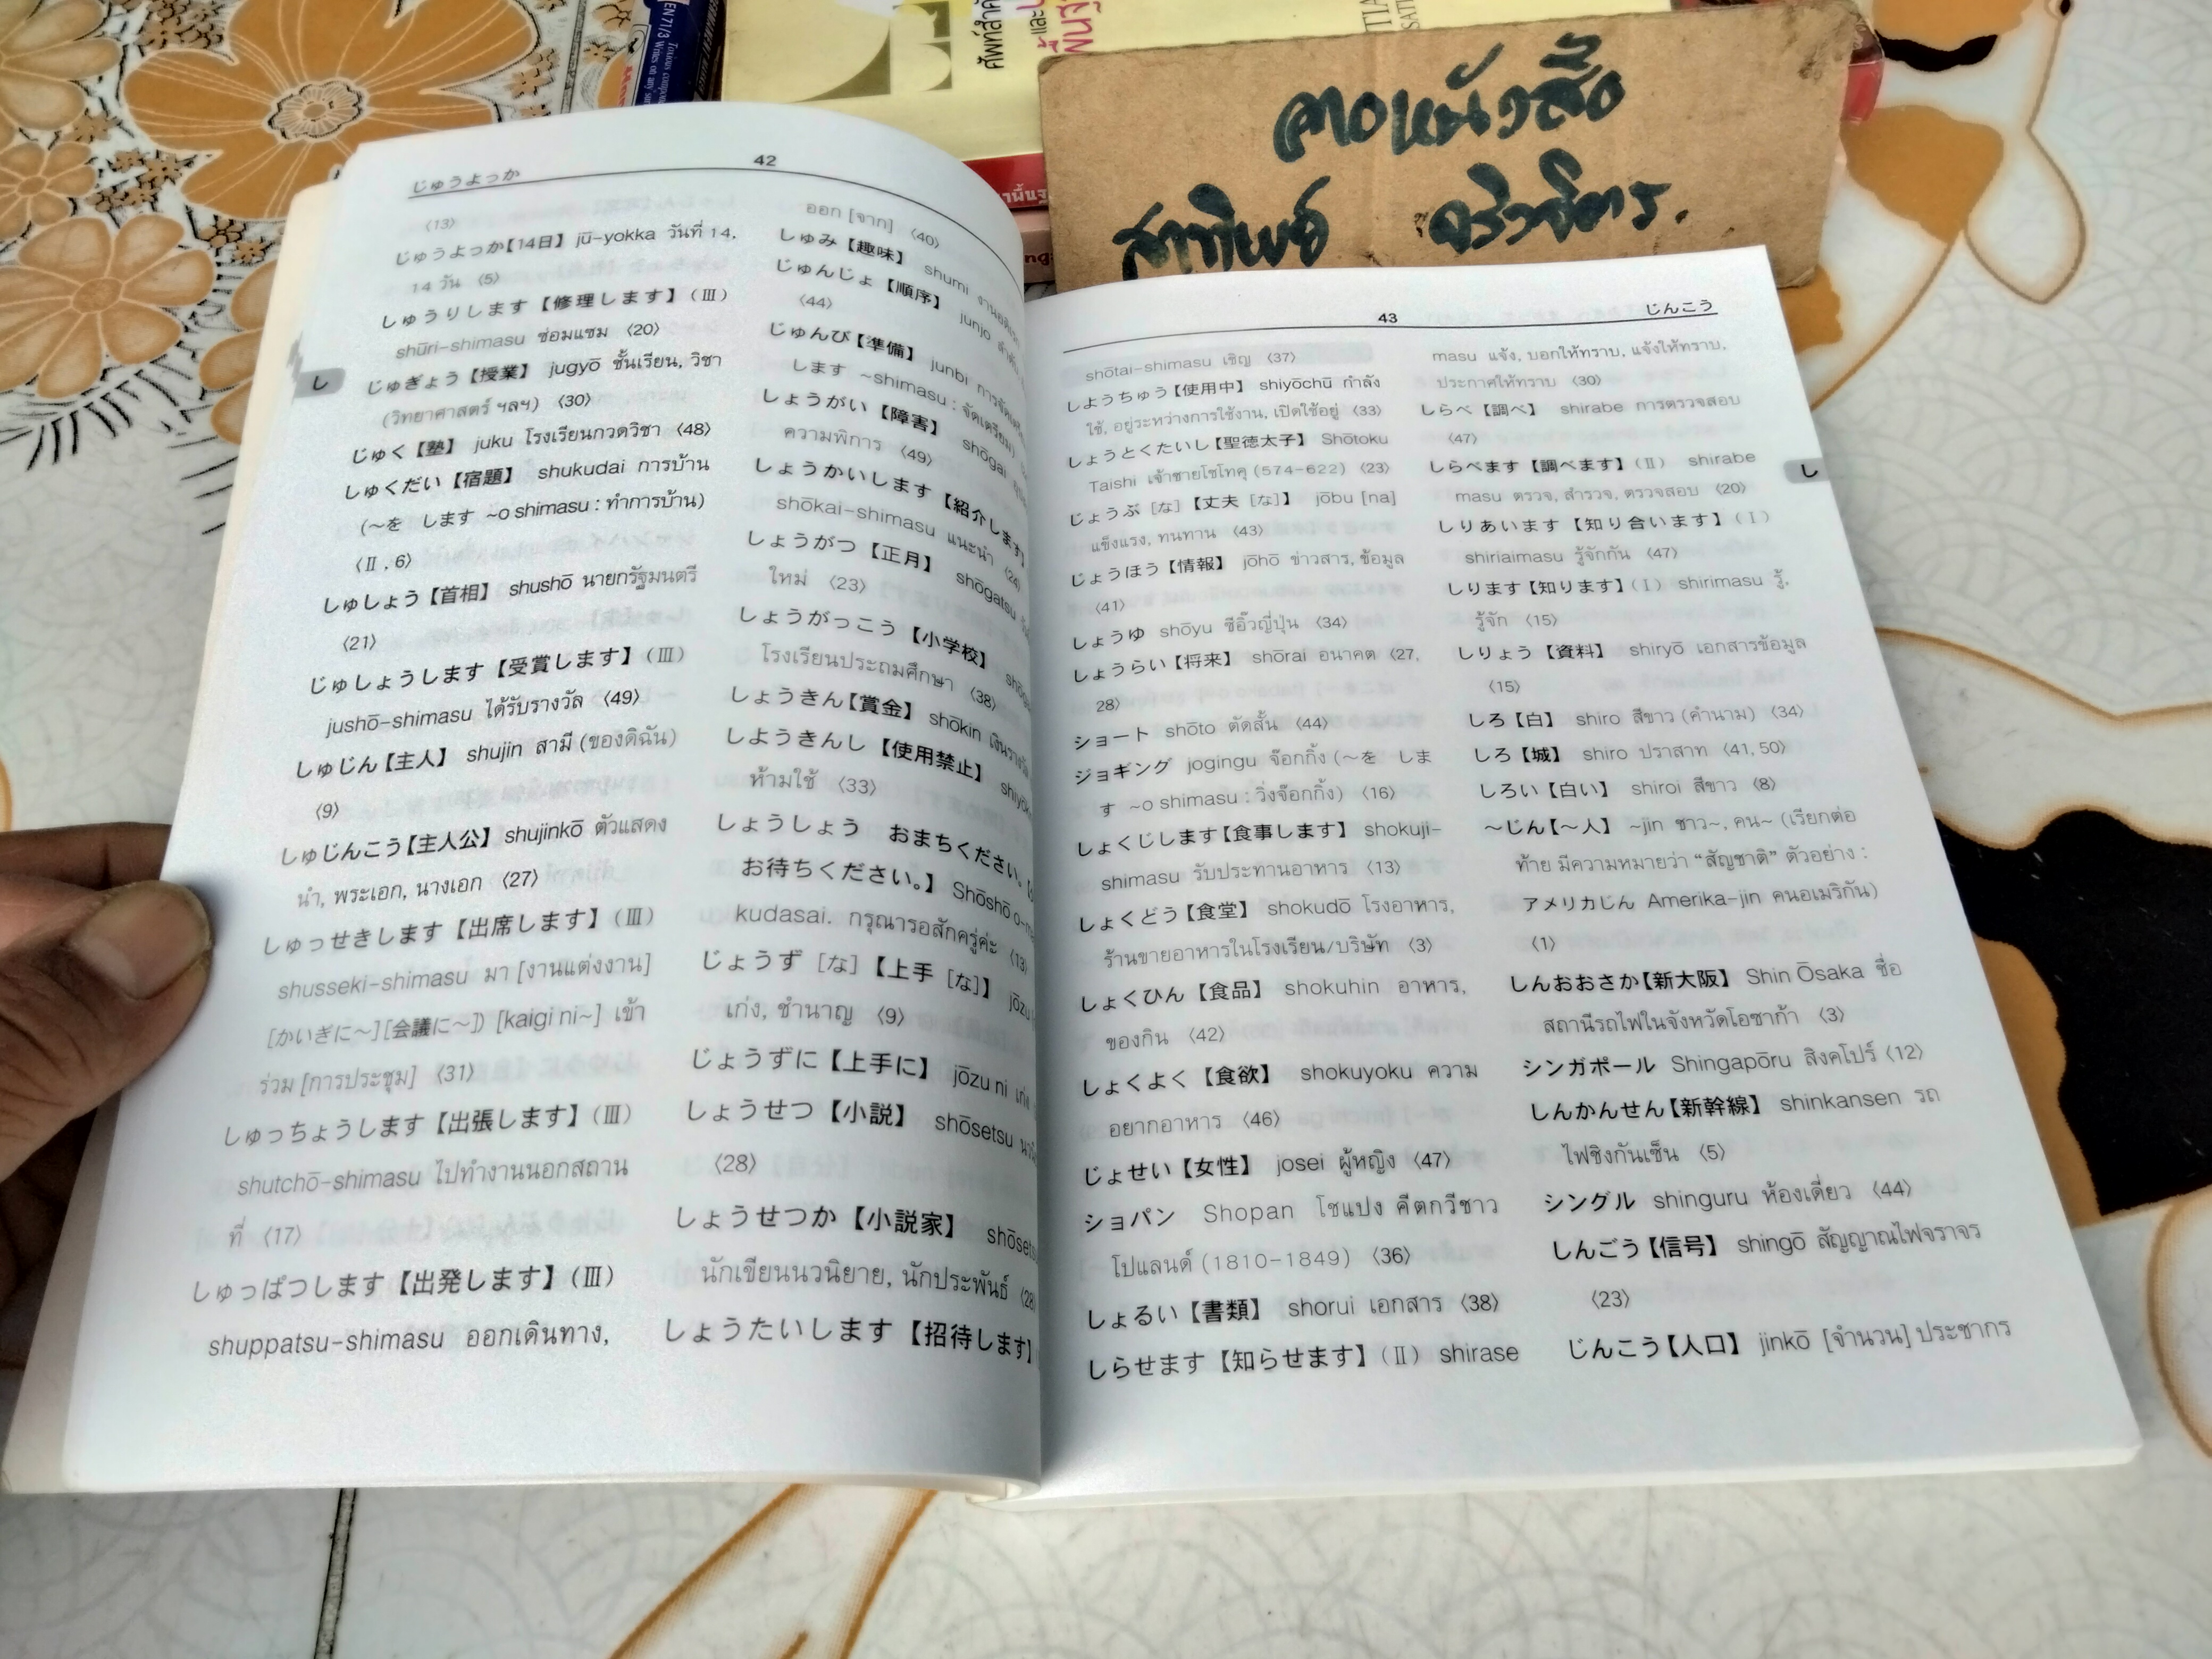 EN71/3 Writes on any
ศัพท์สำคั
และ
จางหนังสือ
じゅうよっか
42
〈13〉
じゅうよっか【14日】 jū-yokka วันที่ 14,
14 วัน 〈5〉
しゅうりします【修理します】(Ⅲ)
shūri-shimasu ซ่อมแซม 〈20〉
じゅぎょう【授業】 jugyō ชั้นเรียน, วิชา
(วิทยาศาสตร์ ฯลฯ) 〈30〉
じゅく【塾】 juku โรงเรียนกวดวิชา 〈48〉
しゅくだい【宿題】 shukudai การบ้าน
(~を します ~o shimasu : ทำการบ้าน)
〈Ⅱ, 6〉
しゅしょう【首相】 shushō นายกรัฐมนตรี
〈21〉
じゅしょうします【受賞します】(Ⅲ)
jushō-shimasu ได้รับรางวัล 〈49〉
しゅじん【主人】 shujin สามี (ของดิฉัน)
〈9〉
しゅじんこう【主人公】 shujinkō ตัวแสดง
นำ, พระเอก, นางเอก 〈27〉
しゅっせきします【出席します】(Ⅲ)
shusseki-shimasu มา [งานแต่งงาน]
[かいぎに~][会議に~]) [kaigi ni~] เข้า
ร่วม [การประชุม] 〈31〉
しゅっちょうします【出張します】(Ⅲ)
shutchō-shimasu ไปทำงานนอกสถาน
ที่ 〈17〉
しゅっぱつします【出発します】(Ⅲ)
shuppatsu-shimasu ออกเดินทาง,
し
ออก [จาก] 〈40〉
しゅみ【趣味】 shumi
じゅんじょ【順序】 junjo
〈44〉
じゅんび【準備】 junbi
します ~shimasu : จัดเตรียม)
しょうがい【障害】 shōgai
ความพิการ 〈49〉
しょうかいします【紹介します】
shōkai-shimasu แนะนำ 〈24〉
しょうがつ【正月】 shōgatsu
ใหม่ 〈23〉
しょうがっこう【小学校】
โรงเรียนประถมศึกษา 〈38〉
しょうきん【賞金】 shōkin
しようきんし【使用禁止】
ห้ามใช้ 〈33〉
しょうしょう おまちください。
お待ちください。】 Shōshō
kudasai. กรุณารอสักครู่ค่ะ 〈13〉
じょうず [な]【上手 [な]】 jōzu
เก่ง, ชำนาญ 〈9〉
じょうずに【上手に】 jōzu ni
しょうせつ【小説】 shōsetsu
〈28〉
しょうせつか【小説家】
นักเขียนนวนิยาย, นักประพันธ์ 〈28〉
しょうたいします【招待します】
43
じんこう
shōtai-shimasu เชิญ 〈37〉
しようちゅう【使用中】 shiyōchū กำลัง
ใช้, อยู่ระหว่างการใช้งาน, เปิดใช้อยู่ 〈33〉
しょうとくたいし【聖徳太子】 Shōtoku
Taishi เจ้าชายโชโทคุ (574-622) 〈23〉
じょうぶ [な]【丈夫 [な]】 jōbu [na]
แข็งแรง, ทนทาน 〈43〉
じょうほう【情報】 jōhō ข่าวสาร, ข้อมูล
〈41〉
しょうゆ shōyu ซีอิ๊วญี่ปุ่น 〈34〉
しょうらい【将来】 shōrai อนาคต 〈27,
28〉
ショート shōto ตัดสั้น 〈44〉
ジョギング jogingu จ๊อกกิ้ง (~を しま
す ~o shimasu : วิ่งจ๊อกกิ้ง) 〈16〉
しょくじします【食事します】 shokuji-
shimasu รับประทานอาหาร 〈13〉
しょくどう【食堂】 shokudō โรงอาหาร,
ร้านขายอาหารในโรงเรียน/บริษัท 〈3〉
しょくひん【食品】 shokuhin อาหาร,
ของกิน 〈42〉
しょくよく【食欲】 shokuyoku ความ
อยากอาหาร 〈46〉
じょせい【女性】 josei ผู้หญิง 〈47〉
ショパン Shopan โชแปง คีตกวีชาว
โปแลนด์ (1810-1849) 〈36〉
しょるい【書類】 shorui เอกสาร 〈38〉
しらせます【知らせます】(Ⅱ) shirase
masu แจ้ง, บอกให้ทราบ, แจ้งให้ทราบ,
ประกาศให้ทราบ 〈30〉
しらべ【調べ】 shirabe การตรวจสอบ
〈47〉
しらべます【調べます】(Ⅱ) shirabe
masu ตรวจ, สำรวจ, ตรวจสอบ 〈20〉
しりあいます【知り合います】(Ⅰ)
shiriaimasu รู้จักกัน 〈47〉
しります【知ります】(Ⅰ) shirimasu รู้,
รู้จัก 〈15〉
しりょう【資料】 shiryō เอกสารข้อมูล
〈15〉
しろ【白】 shiro สีขาว (คำนาม) 〈34〉
しろ【城】 shiro ปราสาท 〈41, 50〉
しろい【白い】 shiroi สีขาว 〈8〉
~じん【~人】 ~jin ชาว~, คน~ (เรียกต่อ
ท้าย มีความหมายว่า “สัญชาติ” ตัวอย่าง :
アメリカじん Amerika-jin คนอเมริกัน)
〈1〉
しんおおさか【新大阪】 Shin Ōsaka ชื่อ
สถานีรถไฟในจังหวัดโอซาก้า 〈3〉
シンガポール Shingapōru สิงคโปร์ 〈12〉
しんかんせん【新幹線】 shinkansen รถ
ไฟชิงกันเซ็น 〈5〉
シングル shinguru ห้องเดี่ยว 〈44〉
しんごう【信号】 shingō สัญญาณไฟจราจร
〈23〉
じんこう【人口】 jinkō [จำนวน] ประชากร
し